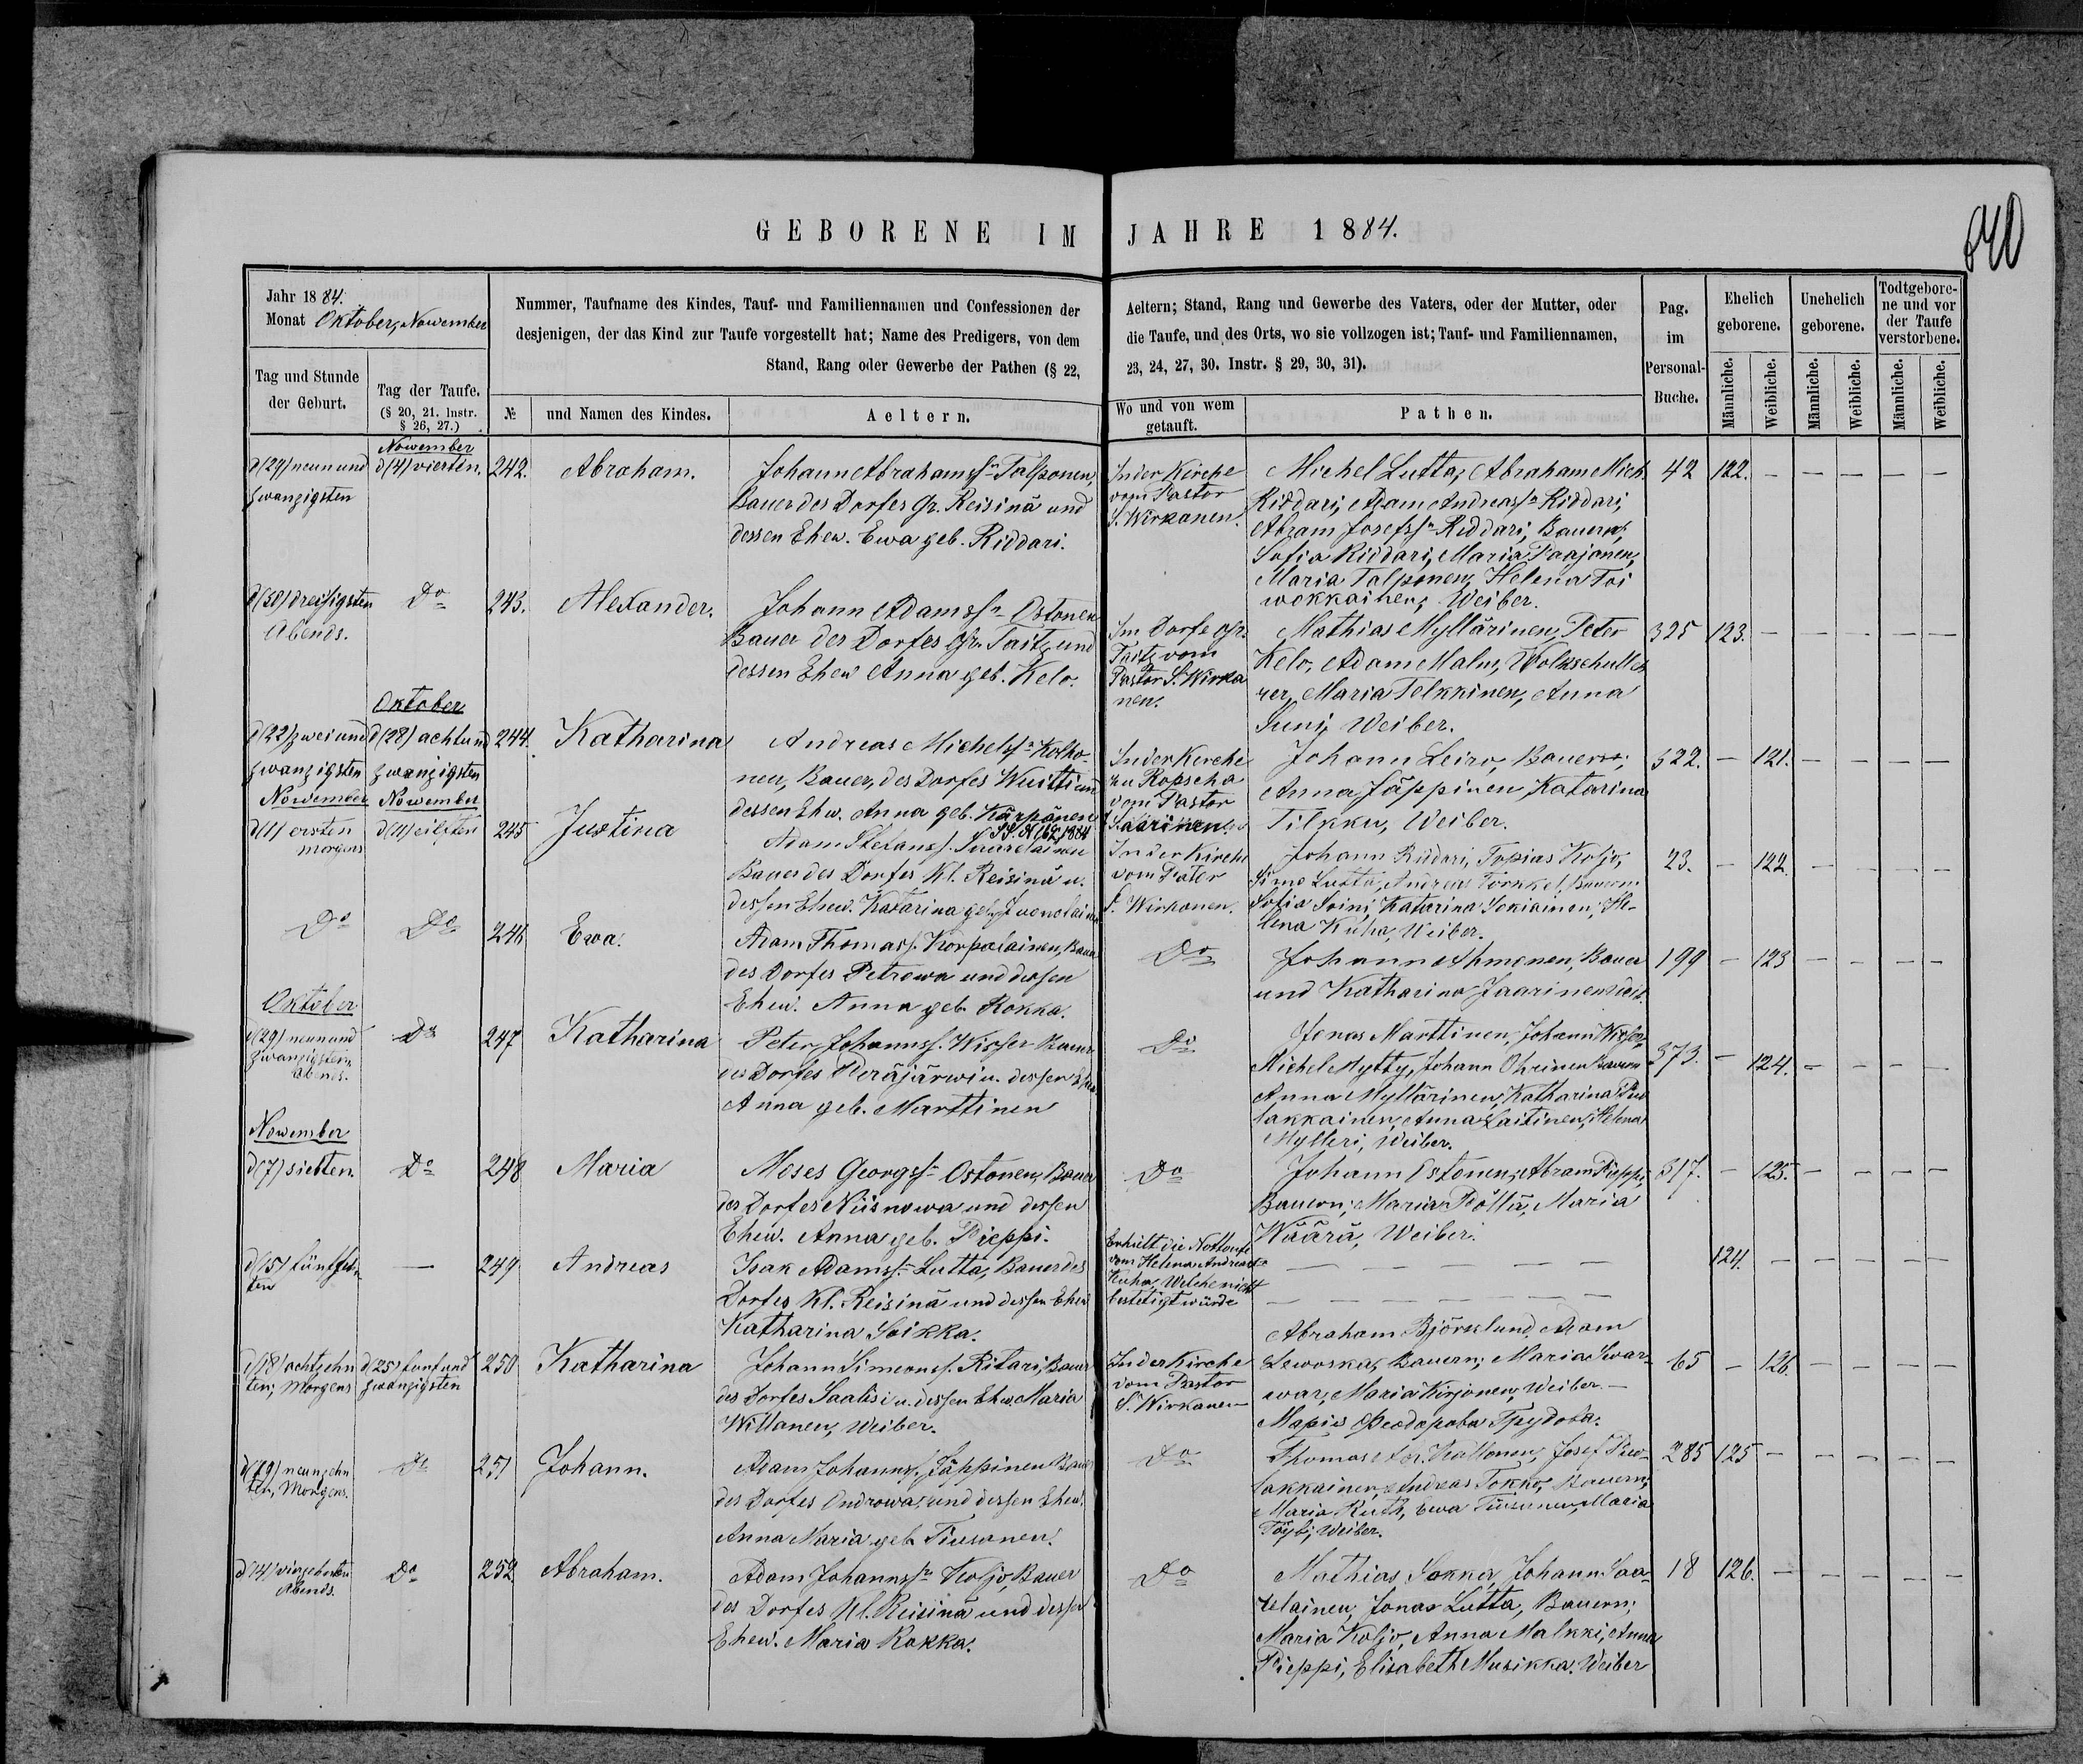 GEBORENE IM JAHRE 1884.
640
Jahr 1884.
Monat Oktober, Nowember
Nummer, Taufname des Kindes, Tauf- und Familiennamen und Confessionen der Aeltern; Stand, Rang und Gewerbe des Vaters, oder der Mutter, oder
desjenigen, der das Kind zur Taufe vorgestellt hat; Name des Predigers, von dem die Taufe, und des Orts, wo sie vollzogen ist; Tauf- und Familiennamen,
Stand, Rang oder Gewerbe der Pathen (§ 22, 23, 24, 27, 30. Instr. § 29, 30, 31).
Pag.
im
Personal-
Buche.
Ehelich
geborene.
Unehelich
geborene.
Todtgebore-
ne und vor
der Taufe
verstorbene.
Tag und Stunde
der Geburt.
Tag der Taufe.
(§ 20, 21. Instr.
§ 26, 27.)
№
und Namen des Kindes.
Aeltern.
Wo und von wem
getauft.
Pathen.
Männliche.
Weibliche.
Männliche.
Weibliche.
Männliche.
Weibliche.
Nowember
d(29) neun und
zwanzigsten
d(4) vierten.
242.
Abraham.
Johann Abrahamss:n Talponen,
Bauer des Dorfes Gr. Reisinä und
dessen Ehew. Ewa geb. Riddari.
In der Kirche
vom Pastor
S. Wirkanen.
Michel Lutta, Abraham Mich.
Riddari, Adam Andreass:n Riddari,
Abram Josefss:n Riddari, Bauern,
Sofia Riddari, Maria Paajanen,
Maria Talponen, Helena Toi
wokkainen, Weiber.
42
122. — — — — —
d(30) dreißigsten
Abends.
Do
243.
Alexander.
Johann Adamss:n Ostonen
Bauer des Dorfes Gr. Taitz und
dessen Ehew Anna geb. Kelo.
Im Dorfe Gr.
Taitz vom
Pastor S. Wirka
nen.
Mathias Myllärinen, Peter
Kelo, Adam Malm, Wolkschulleh
rer, Maria Telkkinen, Anna
Suni, Weiber.
325
123. — — — — —
Oktober
d(22) zwei und
zwanzigsten
d(28) acht und
zwanzigsten
244.
Katharina
Andreas Michelss:n Kolho-
nen, Bauer, des Dorfes Wuitti und
dessen Ehw. Anna geb. Kärpänen
In der Kirche
zu Ropscha
vom Pastor
Saarinen.
Johann Leiro, Bauern;
Anna Jäppinen, Katarina
Tilkku, Weiber.
322.
— 121. — — — —
Nowember
Nowember
d(1) ersten
morgens
d(11) eilften
245
Justina
Adam Stefanss. Suarelainen
Bauer des Dorfes Kl. Reisinä u.
dessen Ehew. Katarina geb.
In der Kirche
vom Pater
S. Wirkanen.
Johann Riddari, Topias Koljo,
Simo Lutta, Andreas Torkkel, Bauern;
Sofia Soini, Katarina Sokiainen, He-
lena Kuha, Weiber.
23.
— 122. — — — —
Do
Do
246
Ewa.
Adam Thomass. Korpelainen, Bauer
des Dorfes Petrowa und dessen
Ehew. Anna geb. Kokka.
Do
Johann Ahmonen, Bauer
und Katharina Jaarinen Weib.
199
— 123 — — — —
Oktober
d(29) neun und
zwanzigsten
Abends.
Do
247
Katharina
Peter Johannss. Wisser Bauer
des Dorfes Peräjärwi u. dessen Ehew.
Anna geb. Marttinen
Do
Jonas Marttinen, Johann Wisser,
Michel Mytty, Johann Ohrinen Bauern
Anna Myllärinen, Katharina Puu
lakkainen, Anna Laitinen, Helena
Mylleri, Weiber.
373.
— 124. — — — —
Nowember
d(7) siebten.
Do
248
Maria
Moses Georgss:n Ostonen, Bauer
des Dorfes Niisnowa und dessen
Ehew. Anna geb. Pieppi.
Do
Johann Ostonen, Abram Pieppi,
Bauern; Maria Pöllä, Maria
Wäärä, Weiber.
317.
— 125. — — — —
d(15) fünfzehn
ten
—
249
Andreas
Isak Adamss:n Lutta, Bauer des
Dorfes Kl. Reisinä und dessen Ehew
Katharina Soikka.
Erhielt die Nottaufe
vom Helena Andreast.
Kuha, Welche nicht
bestetigt würde
— — — — — —
— — — — — —
124. — — — — —
d(18) achtzehn
ten, Morgens
d(25) funf und
zwanzigsten
250
Katharina
Johann Simeonss. Ritari, Bauer
des Dorfes Saalisi u. dessen Ehew. Maria
Willanen, Weiber.
In der Kirche
vom Pastor
S. Wirkanen
Abraham Björklund, Adam
Lewoska, Bauern; Maria Swar-
war, Maria Kirjonen, Weiber. —
Марiя Феодорова Трудова.
65
— 126. — — — —
d(19) neunzehn
ten, Morgens.
Do
251
Johann.
Adam Johannss. Jäppinen Bauer
des Dorfes Ondrowa, und dessen Ehew.
Anna Maria geb. Tiusanen.
Do
Thomas Kallonen, Josef Puu-
lakkainen, Andreas Tokko, Bauern;
Maria Kuth, Ewa Tiusanen, Maria
Weiber.
285
125 — — — — —
Abends.
Do
252.
Abraham.
Adam Johannss:n Koljo, Bauer
des Dorfes Kl. Reisinä und dessen
Ehew. Maria Kokka.
Do
Mathias Sokka, Johann Saa-
relainen, Jonas Lutta, Bauern;
Maria Koljo, Anna Malkki, Anna
Pieppi, Elisabeth Musikka. Weiber
18
126. — — — — —